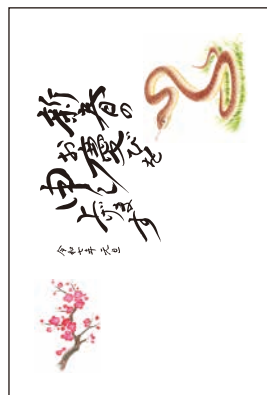 新春の
お慶びを
申し
上げます
令和七年 元旦